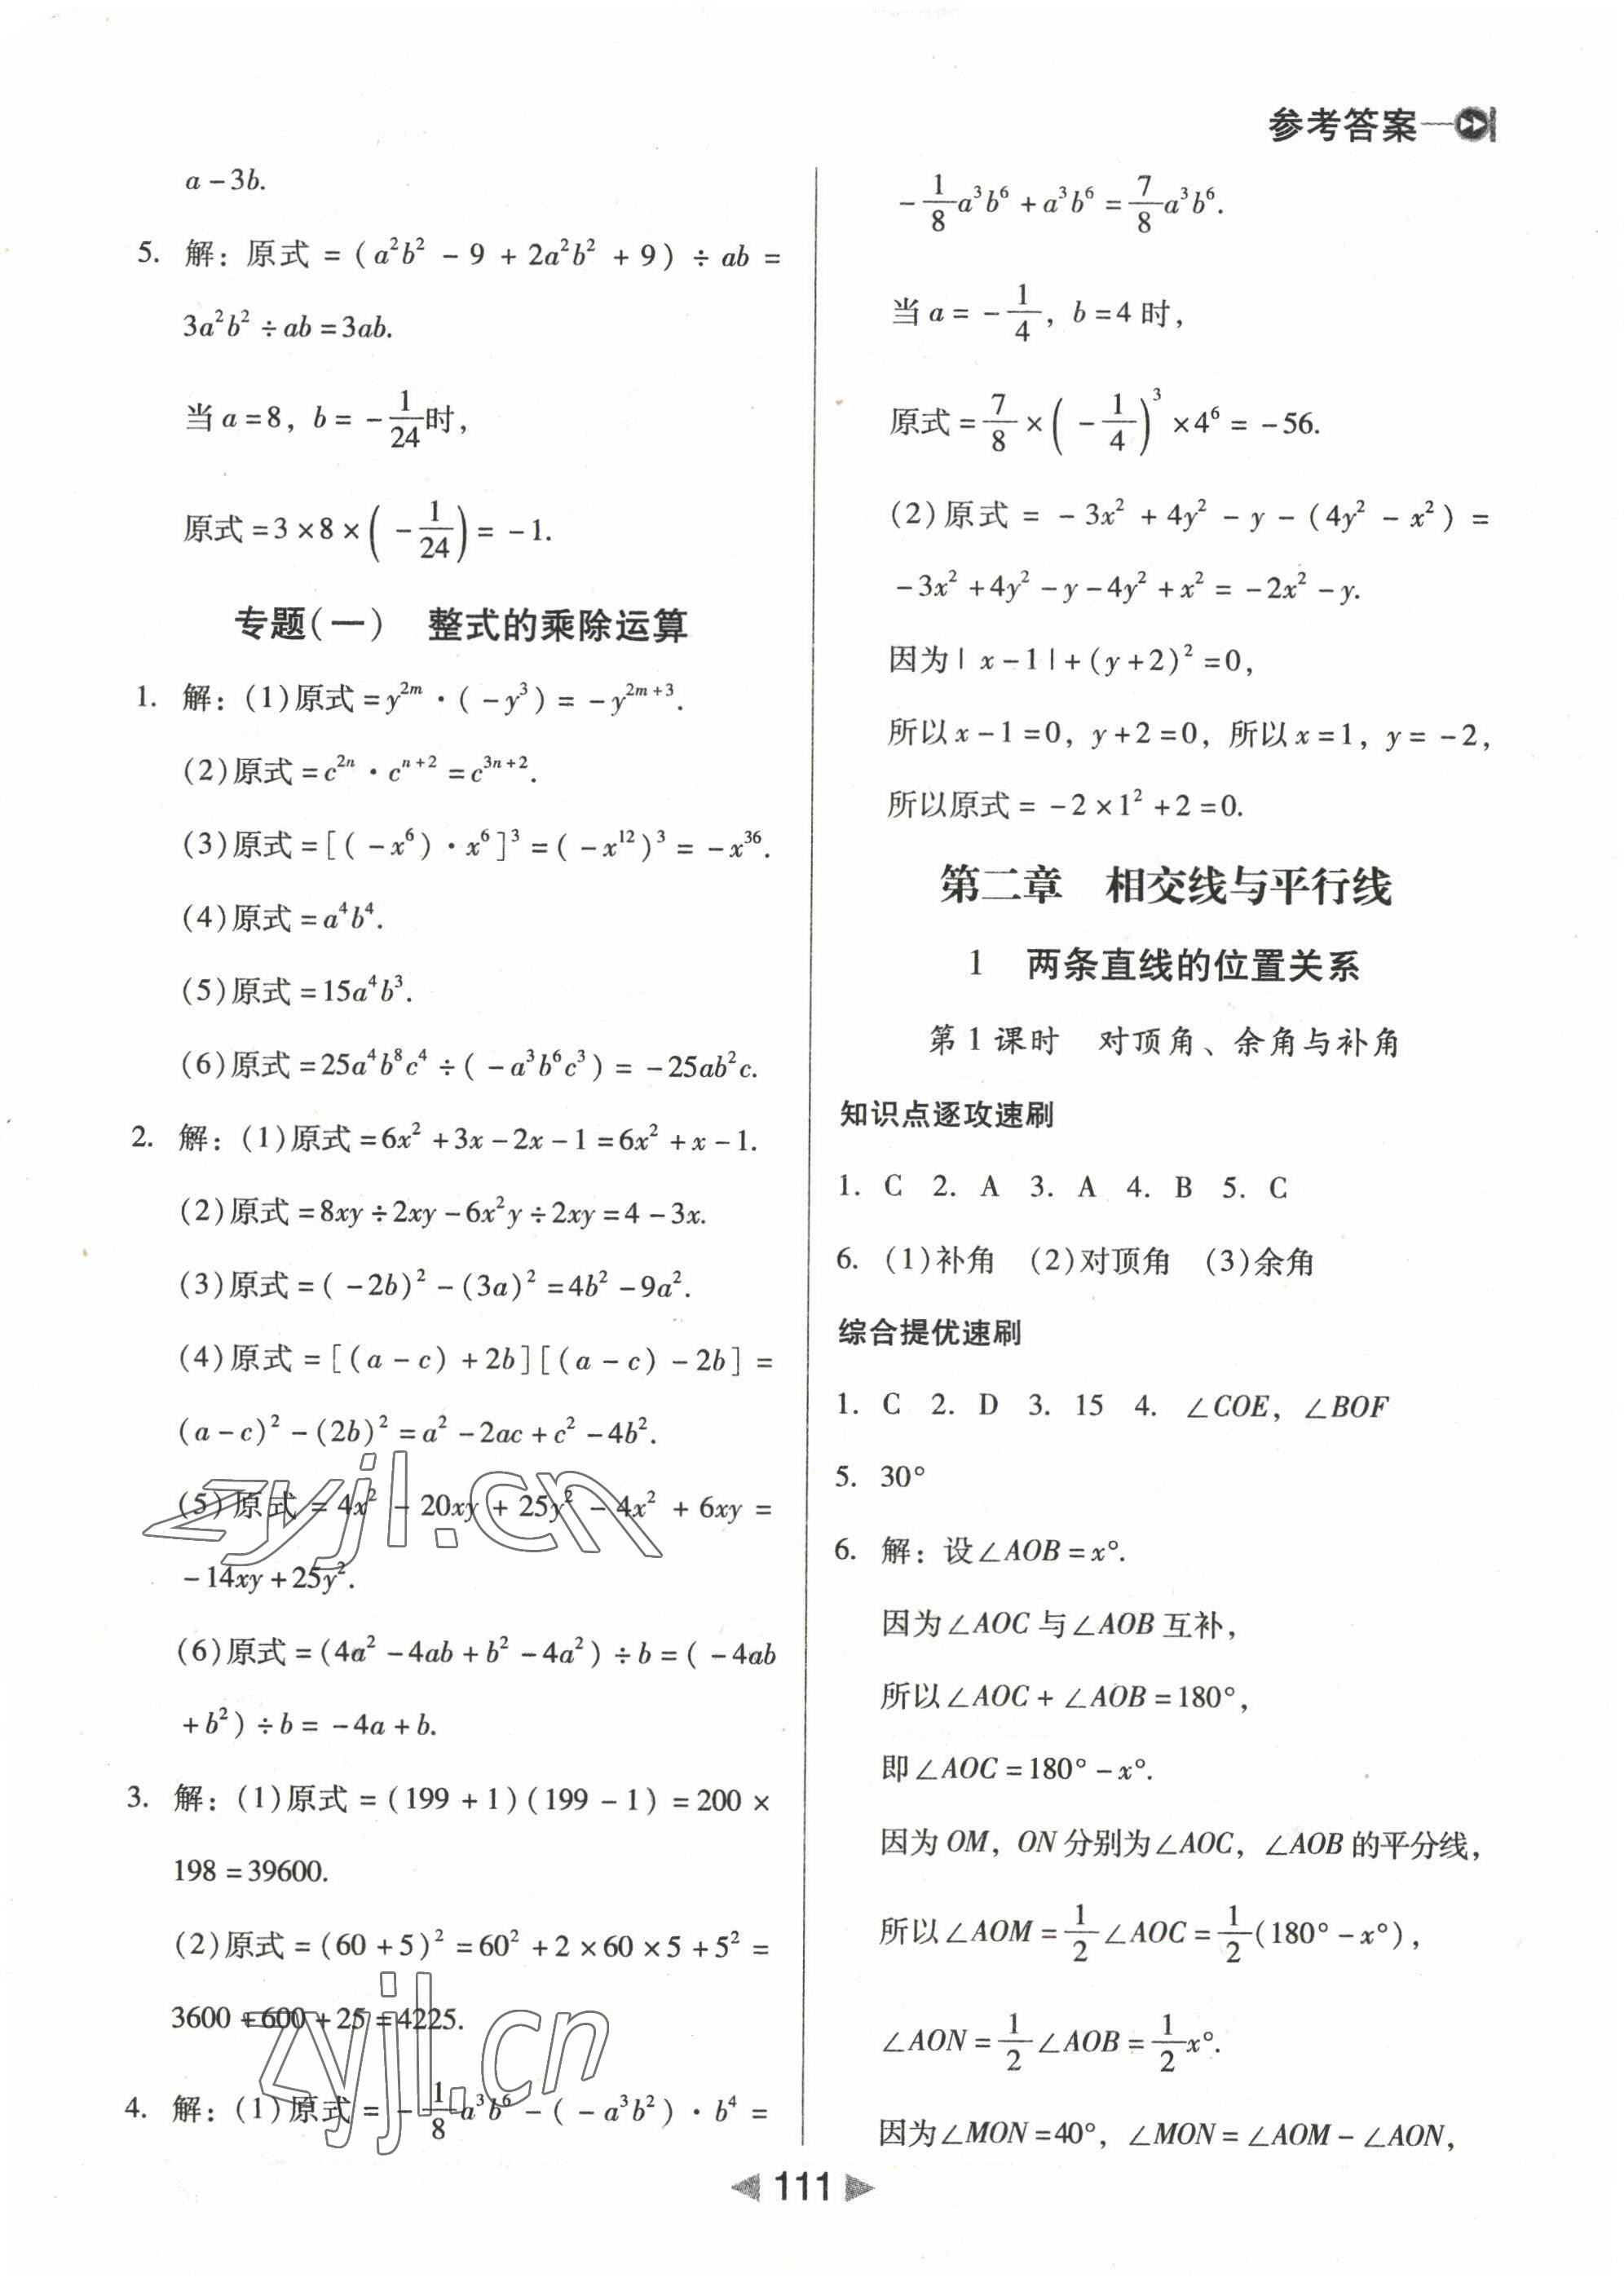 参考答案
a-3b.
5. 解：原式 = (a²b² - 9 + 2a²b² + 9) ÷ ab =
3a²b² ÷ ab = 3ab.
当 a=8, b= -1/24 时,
原式 = 3×8×( -1/24 ) = -1.
专题(一) 整式的乘除运算
1. 解：(1)原式 = y^{2m}·(-y³) = -y^{2m+3}.
(2)原式 = c^{2n}·c^{n+2} = c^{3n+2}.
(3)原式 = [(-x⁶)·x⁶]³ = (-x¹²)³ = -x³⁶.
(4)原式 = a⁴b⁴.
(5)原式 = 15a⁴b³.
(6)原式 = 25a⁴b⁸c⁴ ÷ (-a³b⁶c³) = -25ab²c.
2. 解：(1)原式 = 6x² + 3x - 2x - 1 = 6x² + x - 1.
(2)原式 = 8xy ÷ 2xy - 6x²y ÷ 2xy = 4 - 3x.
(3)原式 = (-2b)² - (3a)² = 4b² - 9a².
(4)原式 = [(a-c) + 2b][(a-c) - 2b] =
(a-c)² - (2b)² = a² - 2ac + c² - 4b².
(5)原式 = 4x² - 20xy + 25y² - 4x² + 6xy =
-14xy + 25y².
(6)原式 = (4a² - 4ab + b² - 4a²) ÷ b = (-4ab
+ b²) ÷ b = -4a + b.
3. 解：(1)原式 = (199 + 1)(199 - 1) = 200 ×
198 = 39600.
(2)原式 = (60 + 5)² = 60² + 2×60×5 + 5² =
3600 + 600 + 25 = 4225.
4. 解：(1)原式 = -1/8 a³b⁶ - (-a³b²)·b⁴ =
-1/8 a³b⁶ + a³b⁶ = 7/8 a³b⁶.
当 a = -1/4, b=4 时,
原式 = 7/8 × ( -1/4 )³ × 4⁶ = -56.
(2)原式 = -3x² + 4y² - y - (4y² - x²) =
-3x² + 4y² - y - 4y² + x² = -2x² - y.
因为 | x-1 | + (y+2)² = 0,
所以 x-1=0, y+2=0, 所以 x=1, y=-2,
所以原式 = -2×1² + 2 = 0.
第二章 相交线与平行线
1 两条直线的位置关系
第1课时 对顶角、余角与补角
知识点逐攻速刷
1. C 2. A 3. A 4. B 5. C
6. (1)补角 (2)对顶角 (3)余角
综合提优速刷
1. C 2. D 3. 15 4. ∠COE, ∠BOF
5. 30°
6. 解：设∠AOB = x°.
因为∠AOC 与∠AOB 互补,
所以∠AOC + ∠AOB = 180°,
即∠AOC = 180° - x°.
因为 OM, ON 分别为∠AOC, ∠AOB 的平分线,
所以∠AOM = 1/2 ∠AOC = 1/2 (180° - x°),
∠AON = 1/2 ∠AOB = 1/2 x°.
因为∠MON = 40°, ∠MON = ∠AOM - ∠AON,
111
zyjl.cn
zyjl.cn